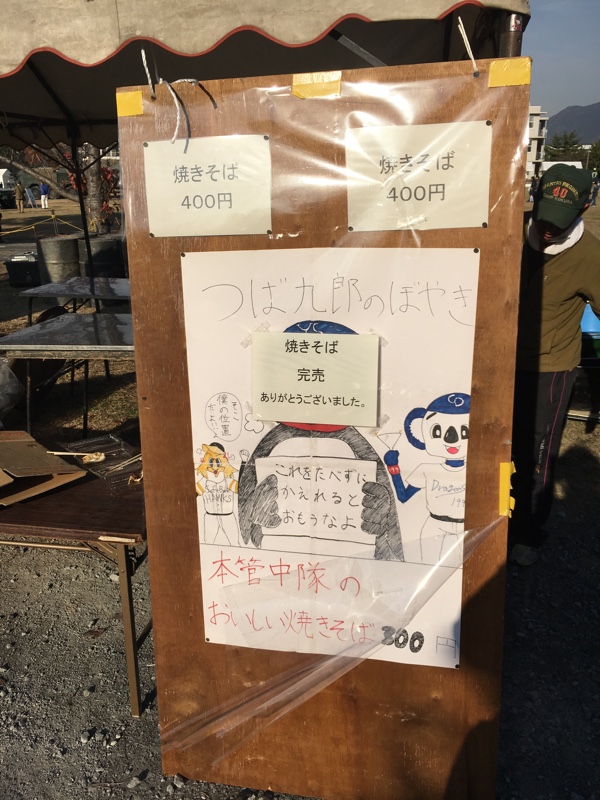 焼きそば
400円
焼きそば
400円
つば九郎のぼやき
焼きそば
完売
ありがとうございました。
そこ
僕の位置
だよ…
HAWKS
Dragons
これをたべずに
かえれると
おもうなよ
本管中隊の
おいしい焼きそば300円
40